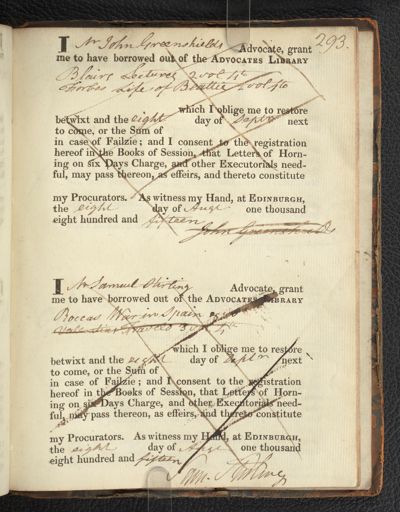 293.
I Mr John Greenshields Advocate, grant
me to have borrowed out of the ADVOCATES LIBRARY
Blairs Lectures 2 vol 4to
Forbes Life of Beattie 2 vol 4to
which I oblige me to restore
betwixt and the eight day of Septr next
to come, or the Sum of
in case of Failzie; and I consent to the registration
hereof in the Books of Session, that Letters of Horn-
ing on six Days Charge, and other Executorials need-
ful, may pass thereon, as effeirs, and thereto constitute
my Procurators. As witness my Hand, at EDINBURGH,
the eight day of Augt one thousand
eight hundred and fifteen
John Greenshields
I Mr Samuel Stirling Advocate, grant
me to have borrowed out of the ADVOCATES LIBRARY
Roccas War in Spain
Travels 3 vol 4to
which I oblige me to restore
betwixt and the eight day of Septr next
to come, or the Sum of
in case of Failzie; and I consent to the registration
hereof in the Books of Session, that Letters of Horn-
ing on six Days Charge, and other Executorials need-
ful, may pass thereon, as effeirs, and thereto constitute
my Procurators. As witness my Hand, at EDINBURGH,
the eight day of Augt one thousand
eight hundred and fifteen
Sam. Stirling